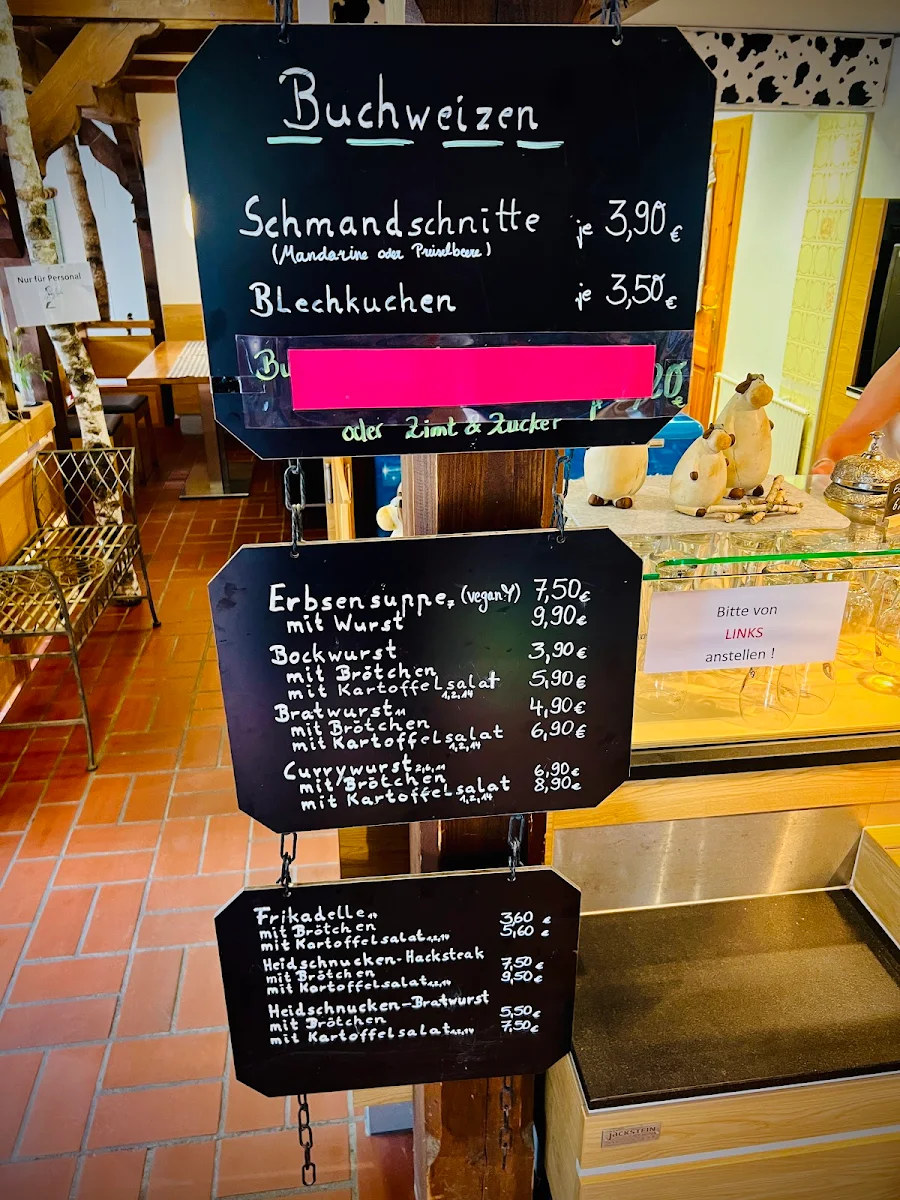 Buchweizen
Schmandschnitte je 3,90 €
(Mandarine oder Preiselbeere)
BLechkuchen je 3,50 €
Bu
oder Zimt & Zucker
Nur für Personal
Erbsensuppe, (vegan) 7,50 €
mit Wurst 9,90 €
Bockwurst
mit Brötchen 3,90 €
mit Kartoffelsalat 1,2,14 5,90 €
Bratwurst
mit Brötchen 4,90 €
mit Kartoffelsalat 1,2,14 6,90 €
Currywurst
mit Brötchen 6,90 €
mit Kartoffelsalat 1,2,14 8,90 €
Bitte von
LINKS
anstellen !
Frikadelle
mit Brötchen 3,60 €
mit Kartoffelsalat 1,2,14 5,60 €
Heidschnucken-Hacksteak
mit Brötchen 7,50 €
mit Kartoffelsalat 1,2,14 9,50 €
Heidschnucken-Bratwurst
mit Brötchen 5,50 €
mit Kartoffelsalat 1,2,14 7,50 €
JACKSTEIN